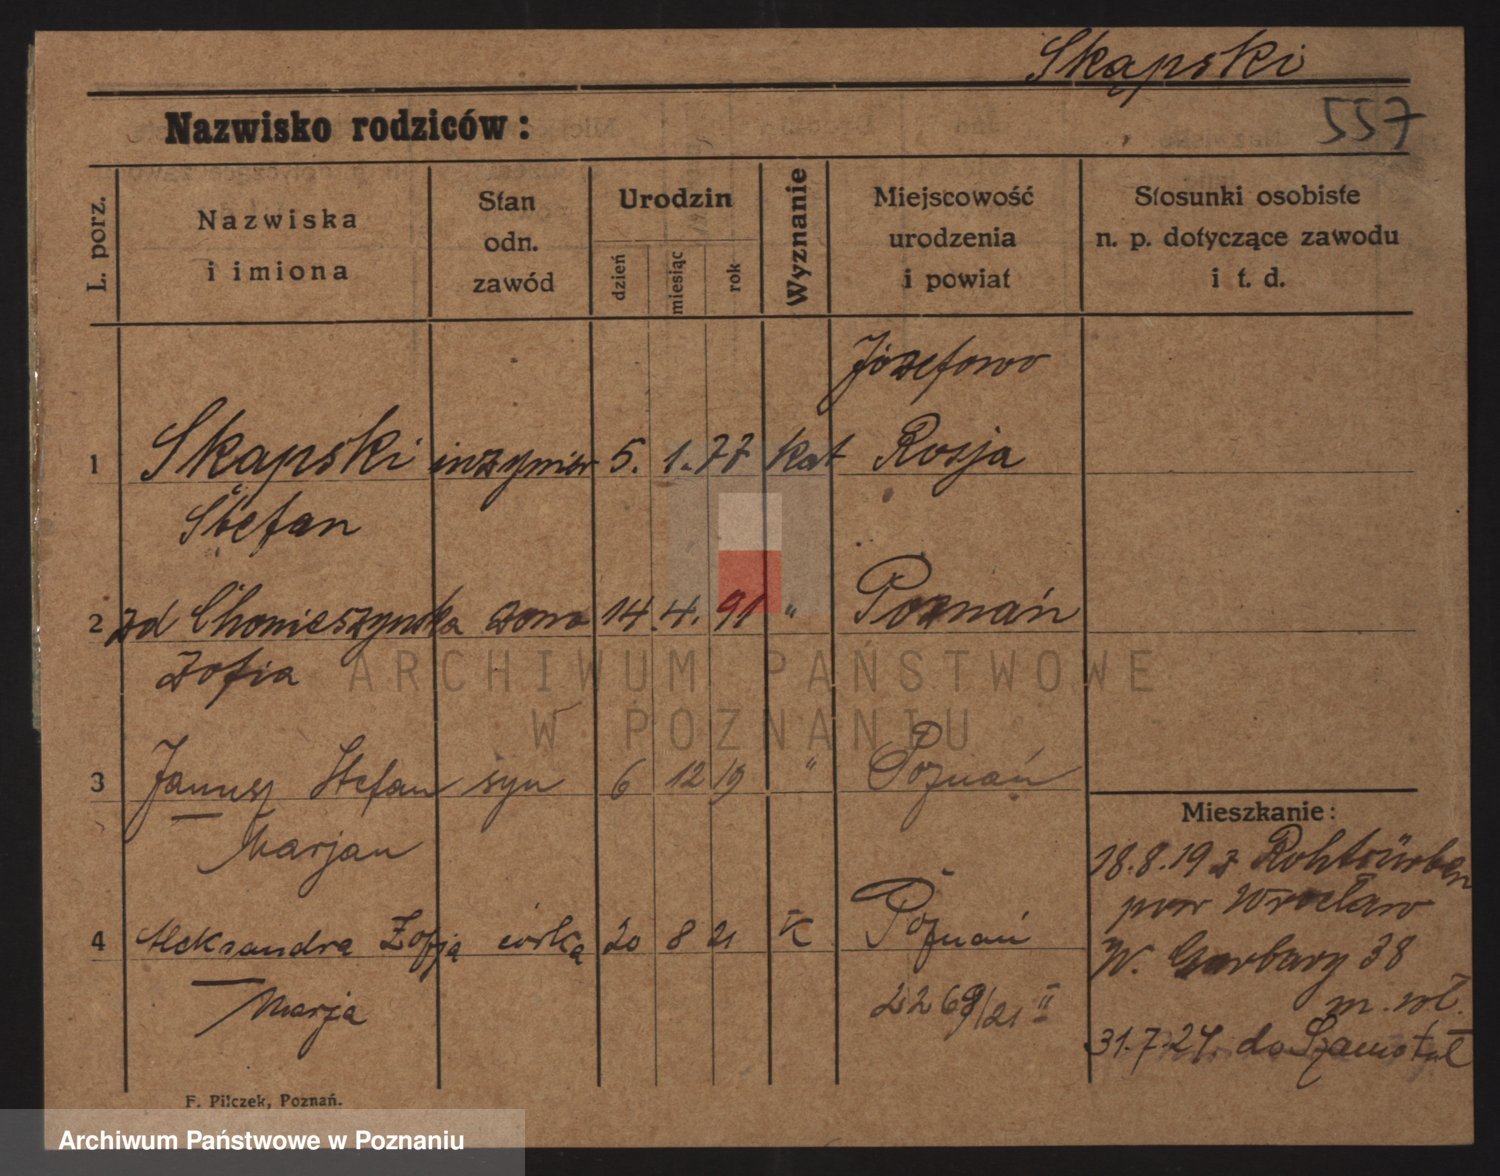 Skąpski
557
Nazwisko rodziców:
L. porz.
Nazwiska
i imiona
Stan
odn.
zawód
Urodzin
dzień
miesiąc
rok
Wyznanie
Miejscowość
urodzenia
i powiat
Stosunki osobiste
n. p. dotyczące zawodu
i t. d.
Józefowo
1 Skapski inżynier 5. 1. 77 kat Rosja
Stefan
2 zd Chomieszynska żona 14. 4. 91 " Poznań
Zofia
3 Janusz Stefan syn 6 12 19 " Poznań
Marjan
4 Aleksandra Zofja córka 20 8 21 K Poznań
Marja
2269/21 II
Mieszkanie:
18.8.19 z Rohtsürben
pow Wrocław
W. Garbary 38
m. wł.
31.7.24. do Szamotuł
F. Pilczek, Poznań.
ARCHIWUM PAŃSTWOWE
W POZNANIU
Archiwum Państwowe w Poznaniu